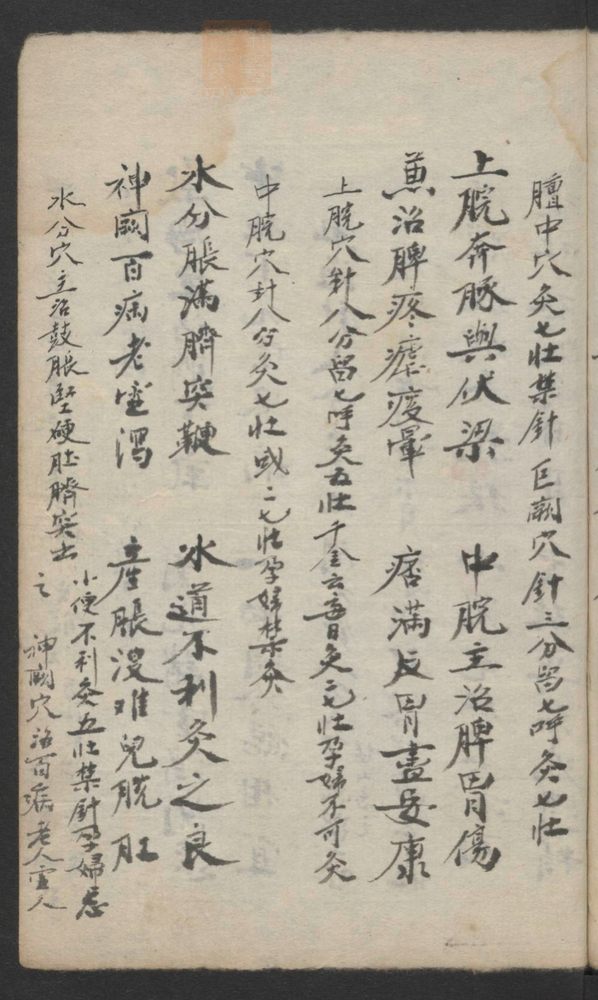 膻中穴灸七壯禁針 巨闕穴針三分留七呼灸七壯
上脘奔豚與伏梁 中脘主治脾胃傷
兼治脾疼瘧痰暈 痞滿反胃盡安康
上脘穴針八分留七呼灸五壯千金云每日灸二七壯孕婦不可灸
中脘穴針八分灸七壯或二七壯孕婦禁灸
水分脹滿臍突鞭 水道不利灸之良
神闕百病老虛瀉 產脹溲难兒脫肛
水分穴主治鼓脹堅硬肚臍突出
小便不利灸五壯禁針孕婦忌
之 神闕穴治百病老人虛人